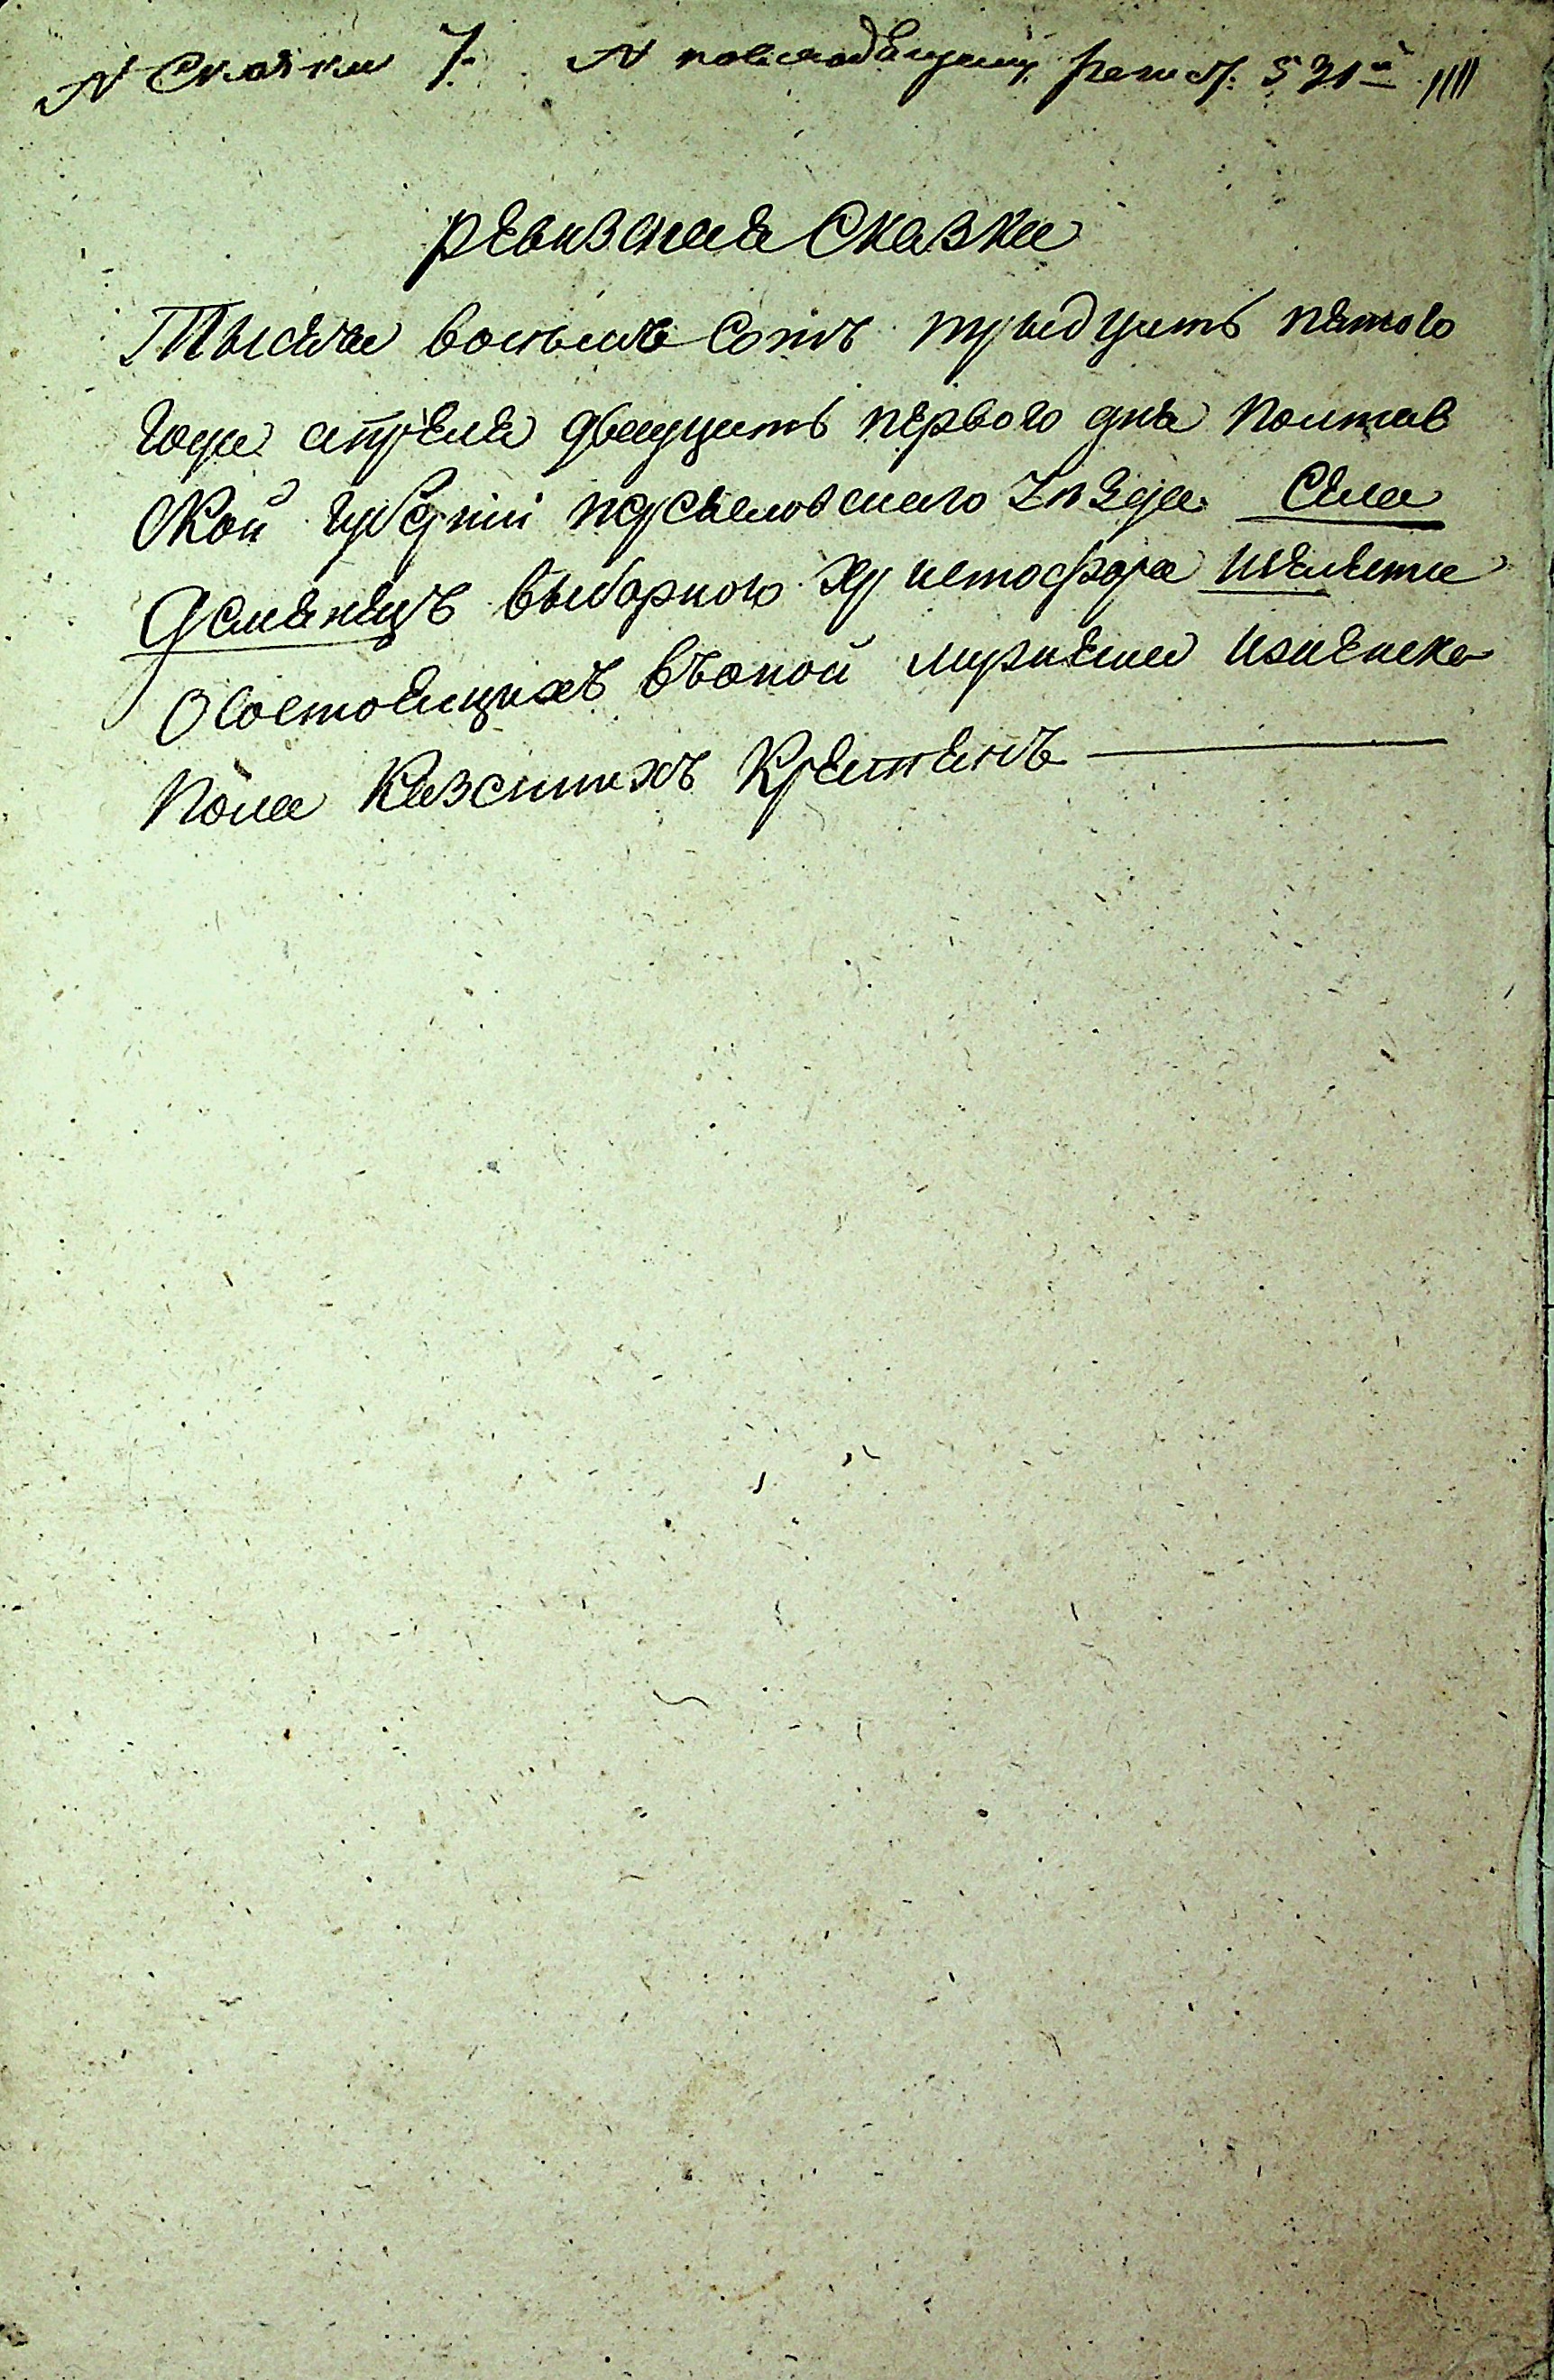 N Сказки 7. N по следующему реестру 531й
ревизкая Сказка
Тысяча восьмъ Сотъ трыдцять пятого
года апреля дваццять первого дня Полтав
ской губернии переяславскаго Уезда Села
Демянецъ выборного христофора Шелеста
О состоящихъ въоной мужеска и женска
Пола Казенныхъ Крестянъ